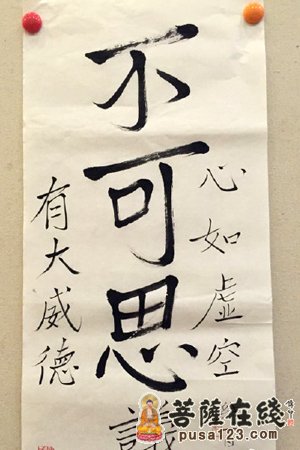 心如虛空
不可思議
有大威德
菩薩在綫
pusa123.com